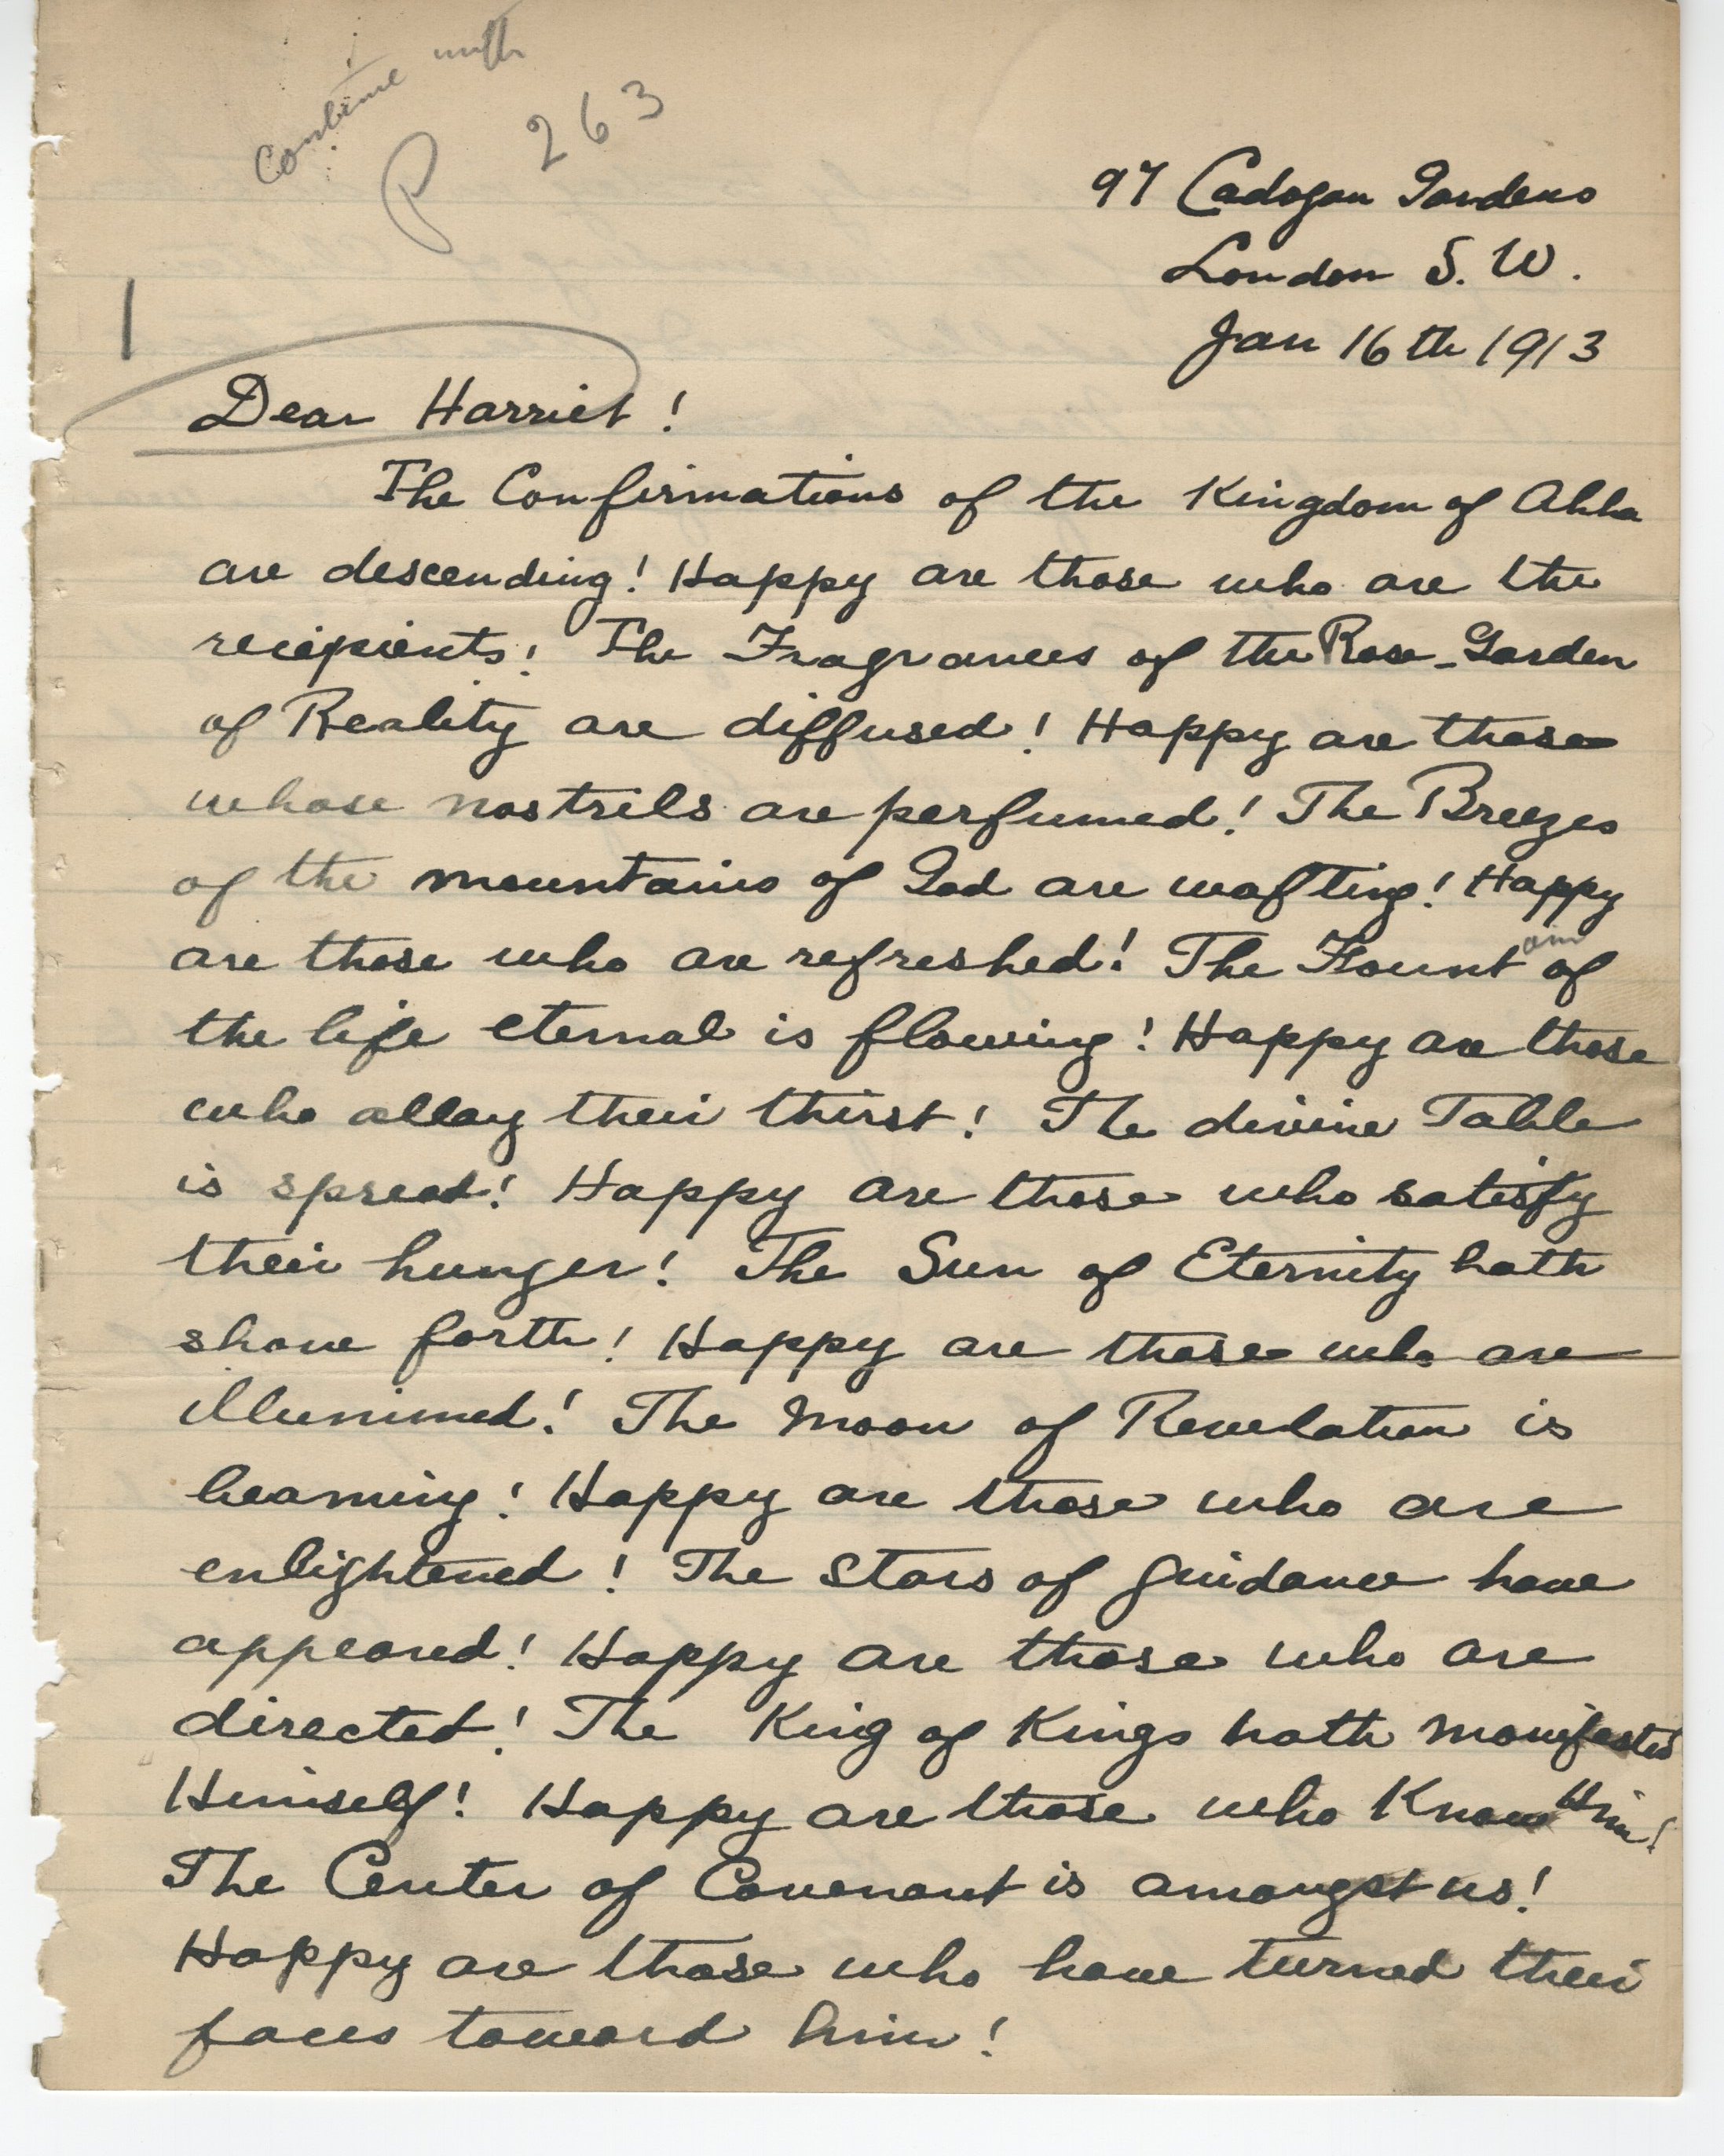 Combine with
P 263
97 Cadogan Gardens
London S. W.
Jan 16th 1913
1
Dear Harriet!
The Confirmations of the Kingdom of Abha
are descending! Happy are those who are the
recipients! The Fragrances of the Rose-Garden
of Reality are diffused! Happy are those
whose nostrils are perfumed! The Breezes
of the mountains of God are wafting! Happy
are those who are refreshed! The Fountain of
the life eternal is flowing! Happy are those
who allay their thirst! The divine Table
is spread! Happy are those who satisfy
their hunger! The Sun of Eternity hath
shone forth! Happy are those who are
illumined! The Moon of Revelation is
beaming! Happy are those who are
enlightened! The Stars of guidance have
appeared! Happy are those who are
directed! The King of Kings hath manifested
Himself! Happy are those who Know Him!
The Center of Covenant is amongst us!
Happy are those who have turned their
faces toward him!